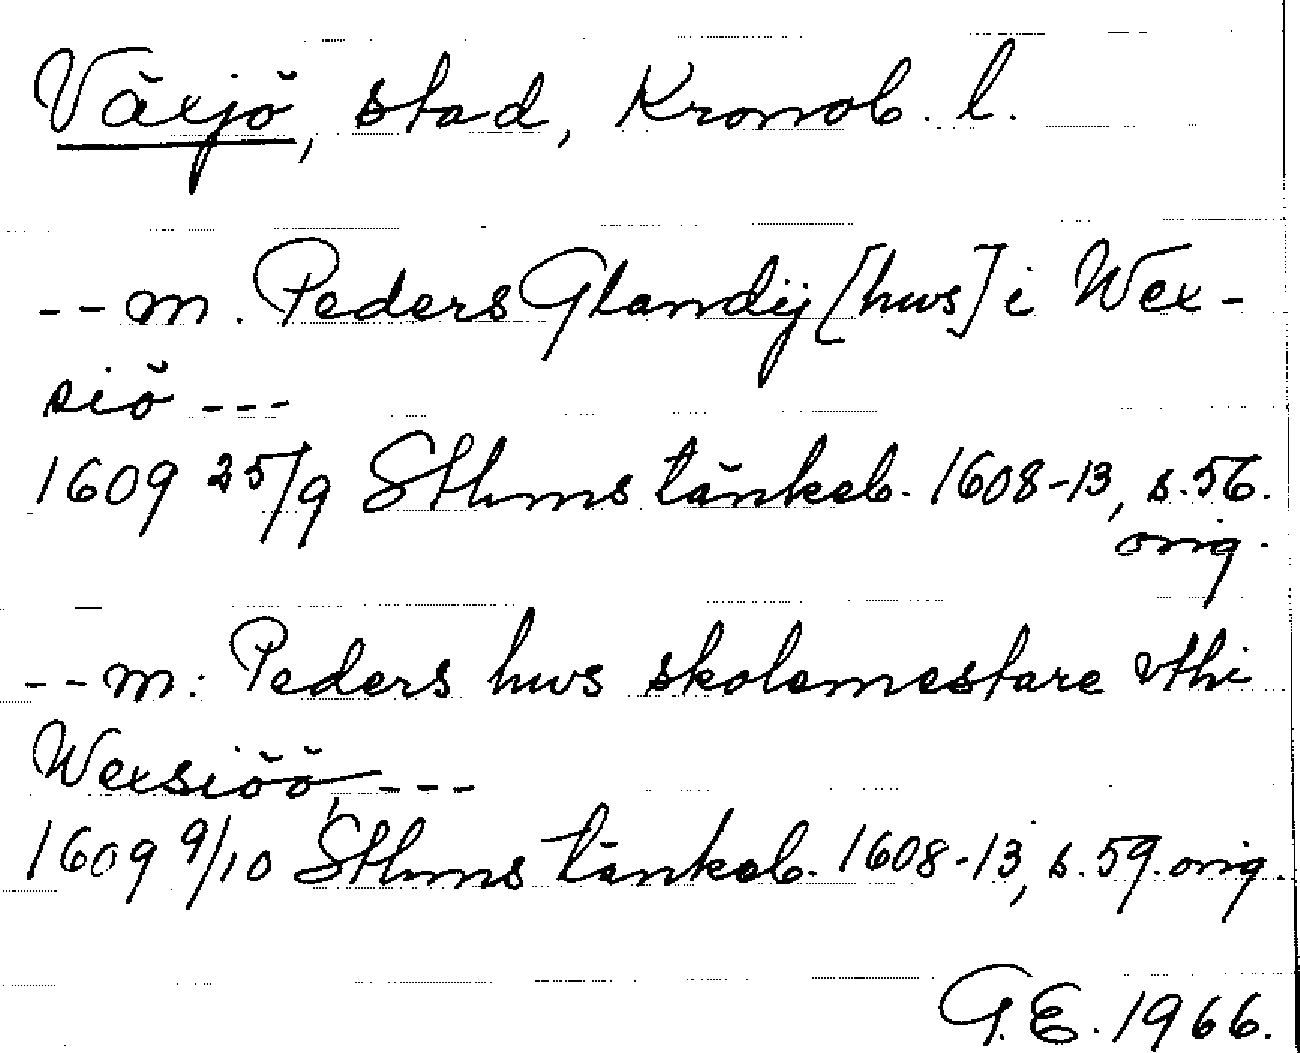 Växjö, stad, Kronob. l.
-- m. Peders Glandij [hws] i Wex-
siö ---
1609 25/9 Sthms tänkeb. 1608-13, s. 56.
orig.
-- m: Peders hws skolemestare vthi
Wexsiöö, ---
1609 9/10 Sthms tänkeb. 1608-13, s. 59. orig.
G.E. 1966.